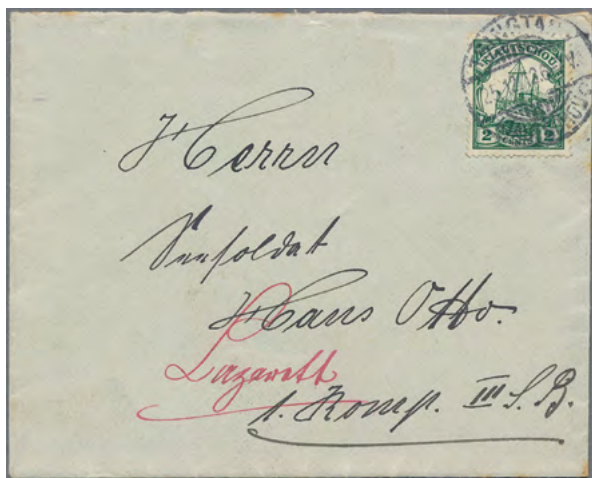 KIAUTSCHOU
2 CENTS 2
Herrn
Seesoldat
Hans Otto.
Lazarett
1. Komp. III S. B.